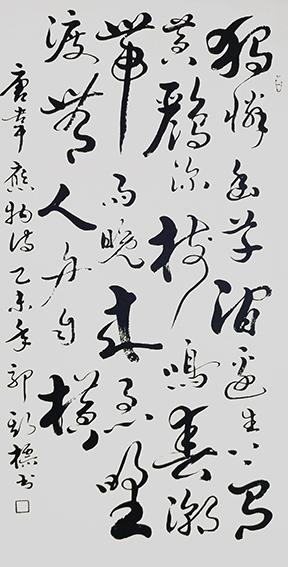 獨憐幽草澗邊生上有
黄鸝深树鳴春潮
帶雨晚来急野
渡無人舟自横
唐韋應物詩乙未年郭標书